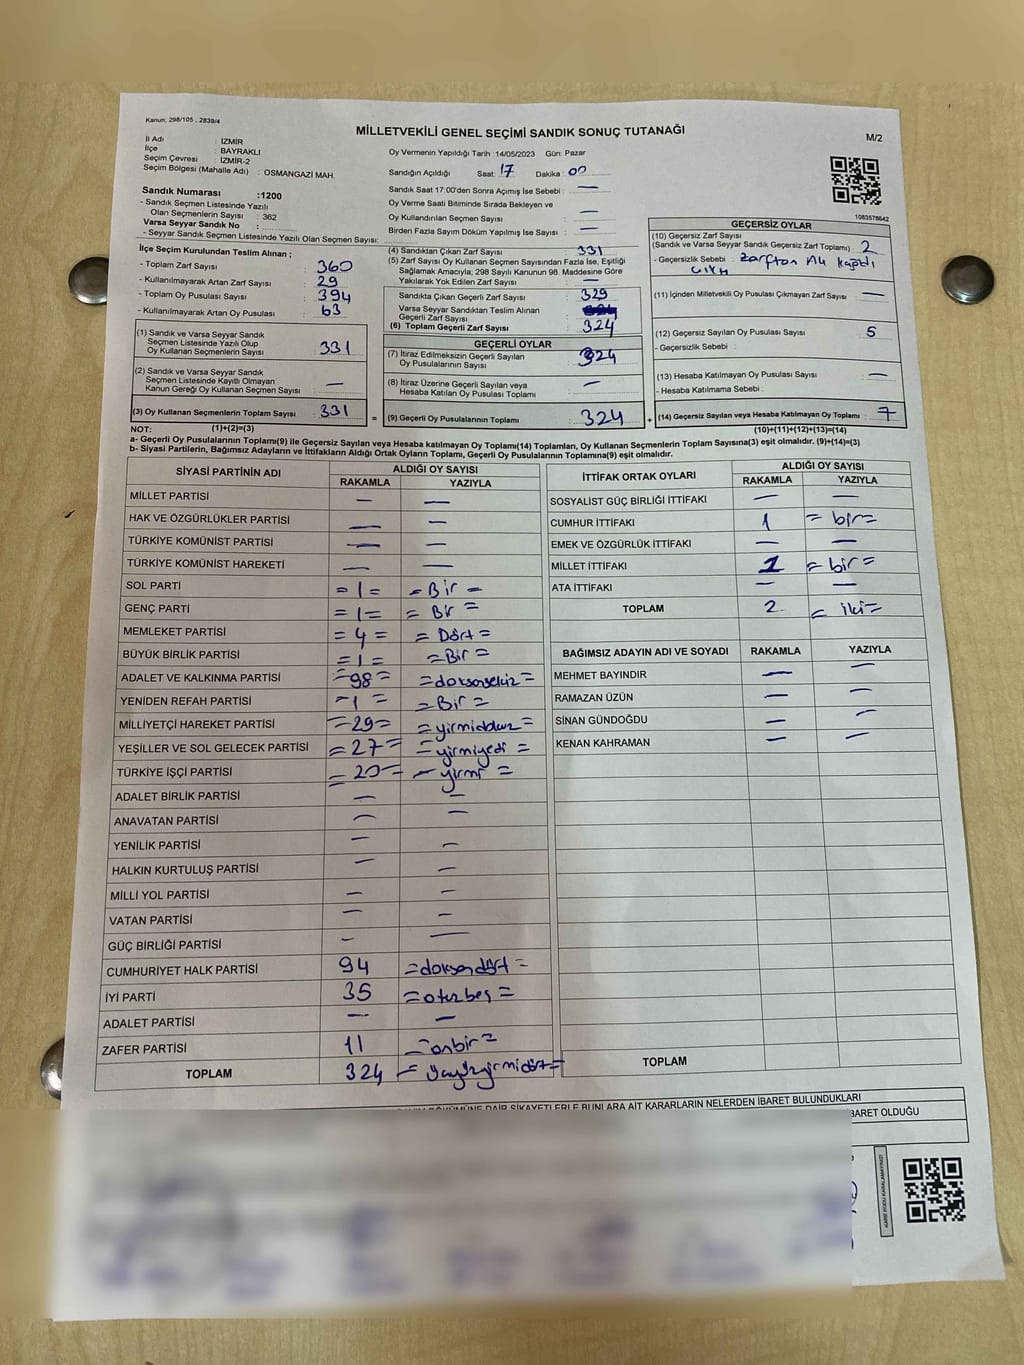 Kanun: 298/105 , 2839/4
MİLLETVEKİLİ GENEL SEÇİMİ SANDIK SONUÇ TUTANAĞI
M/2
İl Adı : İZMİR
İlçe : BAYRAKLI
Seçim Çevresi : İZMİR-2
Seçim Bölgesi (Mahalle Adı) : OSMANGAZİ MAH.
Sandık Numarası :1200
- Sandık Seçmen Listesinde Yazılı
Olan Seçmenlerin Sayısı : 362
Varsa Seyyar Sandık No :
- Seyyar Sandık Seçmen Listesinde Yazılı Olan Seçmen Sayısı:
Oy Vermenin Yapıldığı Tarih :14/05/2023 Gün: Pazar
Sandığın Açıldığı Saat: 17 Dakika 00
Sandık Saat 17:00'den Sonra Açımış İse Sebebi : —
Oy Verme Saati Bitiminde Sırada Bekleyen ve
Oy Kullandırılan Seçmen Sayısı : —
Birden Fazla Sayım Döküm Yapılmış İse Sayısı : —
1083578642
İlçe Seçim Kurulundan Teslim Alınan ;
- Toplam Zarf Sayısı : 360
- Kullanılmayarak Artan Zarf Sayısı : 29
- Toplam Oy Pusulası Sayısı : 394
- Kullanılmayarak Artan Oy Pusulası : 63
(1) Sandık ve Varsa Seyyar Sandık
Seçmen Listesinde Yazılı Olup
Oy Kullanan Seçmenlerin Sayısı : 331
(2) Sandık ve Varsa Seyyar Sandık
Seçmen Listesinde Kayıtlı Olmayan
Kanun Gereği Oy Kullanan Seçmen Sayısı : —
(3) Oy Kullanan Seçmenlerin Toplam Sayısı : 331
(4) Sandıktan Çıkan Zarf Sayısı : 331
(5) Zarf Sayısı Oy Kullanan Seçmen Sayısından Fazla İse, Eşitliği
Sağlamak Amacıyla; 298 Sayılı Kanunun 98. Maddesine Göre
Yakılarak Yok Edilen Zarf Sayısı : —
Sandıkta Çıkan Geçerli Zarf Sayısı : 329
Varsa Seyyar Sandıktan Teslim Alınan
Geçerli Zarf Sayısı
(6) Toplam Geçerli Zarf Sayısı : 324
GEÇERLİ OYLAR
(7) İtiraz Edilmeksizin Geçerli Sayılan
Oy Pusulalarının Sayısı : 324
(8) İtiraz Üzerine Geçerli Sayılan veya
Hesaba Katılan Oy Pusulası Toplamı : —
= (9) Geçerli Oy Pusulalarının Toplamı : 324
GEÇERSİZ OYLAR
(10) Geçersiz Zarf Sayısı
(Sandık ve Varsa Seyyar Sandık Geçersiz Zarf Toplamı) : 2
- Geçersizlik Sebebi :
(11) İçinden Milletvekili Oy Pusulası Çıkmayan Zarf Sayısı : —
(12) Geçersiz Sayılan Oy Pusulası Sayısı : 5
- Geçersizlik Sebebi :
(13) Hesaba Katılmayan Oy Pusulası Sayısı : —
- Hesaba Katılmama Sebebi :
+ (14) Geçersiz Sayılan veya Hesaba Katılmayan Oy Toplamı : 7
NOT: (1)+(2)=(3) (10)+(11)+(12)+(13)=(14)
a- Geçerli Oy Pusulalarının Toplamı(9) ile Geçersiz Sayılan veya Hesaba katılmayan Oy Toplamı(14) Toplamları, Oy Kullanan Seçmenlerin Toplam Sayısına(3) eşit olmalıdır. (9)+(14)=(3)
b- Siyasi Partilerin, Bağımsız Adayların ve İttifakların Aldığı Ortak Oyların Toplamı, Geçerli Oy Pusulalarının Toplamına(9) eşit olmalıdır.
SİYASİ PARTİNİN ADI ALDIĞI OY SAYISI
RAKAMLA YAZIYLA
MİLLET PARTİSİ — —
HAK VE ÖZGÜRLÜKLER PARTİSİ — —
TÜRKİYE KOMÜNİST PARTİSİ — —
TÜRKİYE KOMÜNİST HAREKETİ — —
SOL PARTİ =1= =Bir=
GENÇ PARTİ =1= =Bir=
MEMLEKET PARTİSİ =4= =Dört=
BÜYÜK BİRLİK PARTİSİ =1= =Bir=
ADALET VE KALKINMA PARTİSİ =98= =doksansekiz=
YENİDEN REFAH PARTİSİ =1= =Bir=
MİLLİYETÇİ HAREKET PARTİSİ =29= =yirmidokuz=
YEŞİLLER VE SOL GELECEK PARTİSİ =27= =yirmiyedi=
TÜRKİYE İŞÇİ PARTİSİ =20= =yirmi=
ADALET BİRLİK PARTİSİ — —
ANAVATAN PARTİSİ — —
YENİLİK PARTİSİ — —
HALKIN KURTULUŞ PARTİSİ — —
MİLLİ YOL PARTİSİ — —
VATAN PARTİSİ — —
GÜÇ BİRLİĞİ PARTİSİ — —
CUMHURİYET HALK PARTİSİ 94 =doksandört=
İYİ PARTİ 35 =otuzbeş=
ADALET PARTİSİ — —
ZAFER PARTİSİ 11 =onbir=
TOPLAM 324
İTTİFAK ORTAK OYLARI ALDIĞI OY SAYISI
RAKAMLA YAZIYLA
SOSYALİST GÜÇ BİRLİĞİ İTTİFAKI — —
CUMHUR İTTİFAKI 1 =bir=
EMEK VE ÖZGÜRLÜK İTTİFAKI — —
MİLLET İTTİFAKI 1 =bir=
ATA İTTİFAKI — —
TOPLAM 2 =iki=
BAĞIMSIZ ADAYIN ADI VE SOYADI RAKAMLA YAZIYLA
MEHMET BAYINDIR — —
RAMAZAN ÜZÜN — —
SİNAN GÜNDOĞDU — —
KENAN KAHRAMAN — —
TOPLAM
DÖKÜMÜNE DAİR ŞİKAYETLERLE BUNLARA AİT KARARLARIN NELERDEN İBARET BULUNDUKLARI
BARET OLDUĞU
KARE KODU KARALAMAYINIZ!